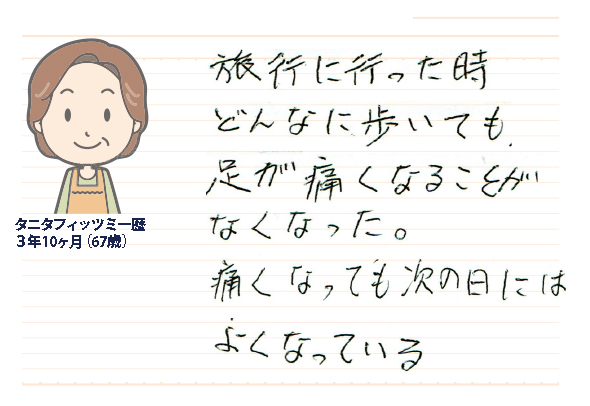 旅行に行った時
どんなに歩いても、
足が痛くなることが
なくなった。
痛くなっても次の日には
よくなっている
タニタフィッツミー歴
３年10ヶ月（67歳）